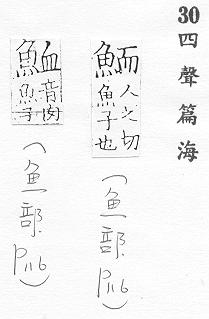 30 四聲篇海
鮞 人之切
魚子也
(魚部 P116)
䱛 音肉
魚子
(魚部 P116)